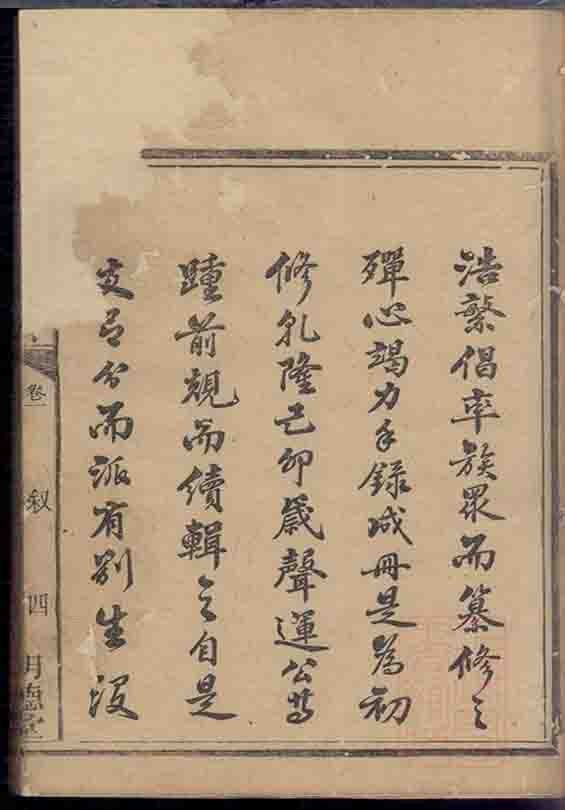 浩繁倡率族眾而纂修之
殫心竭力手錄成冊是為初
修乾隆己卯歲聲運公等
踵前規而續輯之自是
支分而派有別生歿
卷一
叙
四